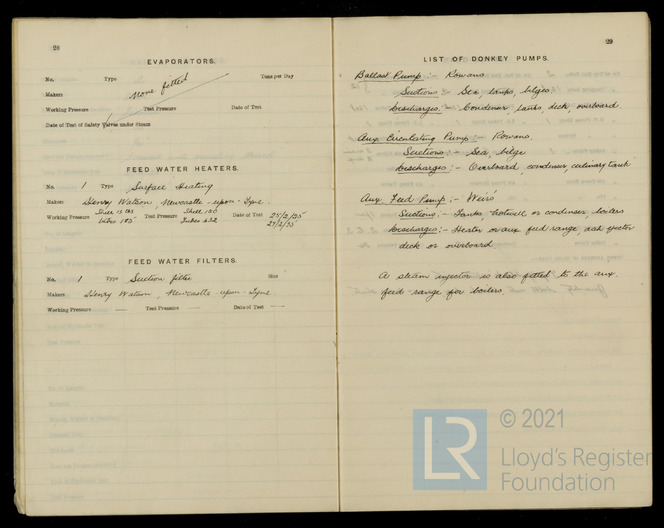 28
EVAPORATORS.
No. Type Tons per Day
None fitted
Makers
Working Pressure Test Pressure Date of Test
Date of Test of Safety Valves under Steam
FEED WATER HEATERS.
No. 1 Type Surface Heating
Makers Henry Watson, Newcastle-upon-Tyne.
Working Pressure Shell 15 lbs Test Pressure Shell Date of Test 25/2/35
Tubes 27/2/35
FEED WATER FILTERS.
No. 1 Type Suction filter Size
Makers Henry Watson, Newcastle-upon-Tyne.
Working Pressure — Test Pressure — Date of Test —
29
LIST OF DONKEY PUMPS.
Ballast Pump :- Rowans
Suctions :- Sea, tanks, bilges
Discharges :- Condenser, tanks, deck, overboard
Aux Circulating Pump :- Rowans.
Suctions :- Sea, bilge
Discharges :- Overboard, condenser, culinary tank
Aux. Feed Pump :- Weirs
Suctions :- Tanks, hotwell or condenser, boilers
Discharges :- Heater or aux feed range, ash ejector
deck or overboard
A steam injector is also fitted to the aux.
feed range for boilers.
LR
© 2021
Lloyd's Register
Foundation